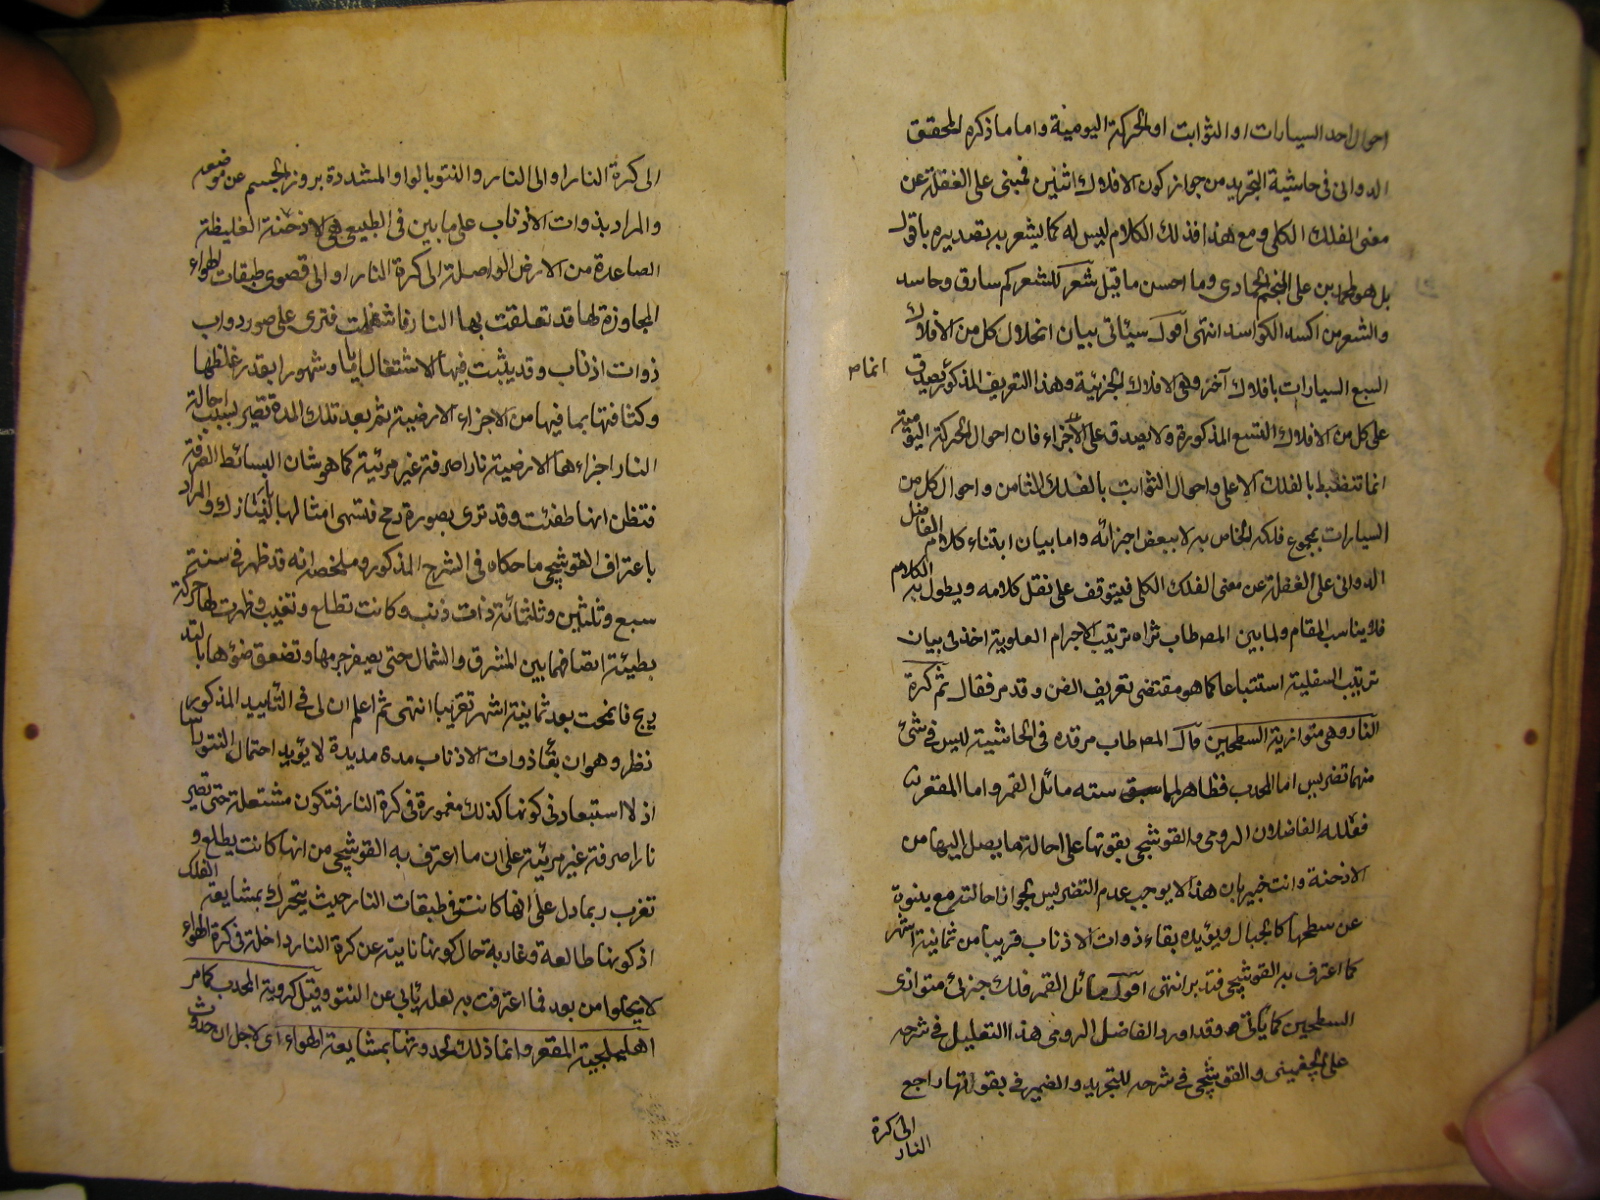 احوال احد السيارات او الثوابت او الحركة اليومية واما ما ذكره المحقق
الدوانى فى حاشية التجريد من جواز كون الافلاك اثنين فمبنى على الغفلة عن
معنى الفلك الكلى ومع هذا فذلك الكلام ليس له كما يشعر به تصديره باقول
بل هو لمحمد بن على المنجم الحمادى وما احسن ما قيل شعر للشعر كم سارق وحاسد
والشعر من اكسد الكواسد انتهى اقول سيأتى بيان انحلال كل من الافلاك
السبع السيارات بافلاك آخر وهى الافلاك الجزئية وهذا التعريف المذكور يصدق
اتمام
على كل من الافلاك التسع المذكورة ولا يصدق على الاجزاء فان احوال الحركة اليومية
انما تنضبط بالفلك الاعلى واحوال الثوابت بالفلك الثامن واحوال كل من
السيارات بمجموع فلكه الخاص به لا ببعض اجزائه واما بيان ابتناء كلام الفاضل
الدوانى على الغفلة عن معنى الفلك الكلى فيتوقف على نقل كلامه ويطول به الكلام
فلا يناسب المقام ولما بين المص طاب ثراه ترتيب الاجرام العلوية اخذ فى بيان
ترتيب السفلية استتباعا كما هو مقتضى تعريف الفن وقد مر فقال ثم كرة
النار وهى متوازية السطحين قال المص طاب مرقده فى الحاشية ليس فى شئ
منهما تضريس اما المحدب فظاهر لما سبق مائل القمر واما المقعر
فعلله الفاضلان الرومى والقوشچى بقوتها على احالة ما يصل اليها من
الادخنة وانت خبير بان هذا لا يوجب عدم التضريس لجواز احالته مع نتوه
عن سطحها كالجبال ويؤيده بقاء ذوات الاذناب قريبا من ثمانية اشهر
كما اعترف به القوشچى فتدبر انتهى اقول مائل القمر فلك جزئى متوازى
السطحين كما يأتى وقد اورد الفاضل الرومى هذا التعليل فى شرحه
على الچغمينى والقوشچى فى شرحه للتجريد والضمير فى بقوتها راجع
الى كرة
النار
الى كرة النار او الى النار والنتو بالواو المشددة بروز الجسم عن موضعه
والمراد بذوات الاذناب على ما بين فى الطبيعى هى الادخنة الغليظة
الصاعدة من الارض الواصلة الى كرة النار او الى قصوى طبقات الهواء
المجاوزة لها قد تعلقت بها النار فاشتعلت فترى على صور دواب
ذوات اذناب وقد يثبت فيها الاشتعال اياما وشهورا بقدر غلظها
وكثافتها بما فيها من الاجزاء الارضية ثم بعد تلك المدة تصير بسبب احالة
النار اجزاءها الارضية نارا صرفة غير مرئية كما هو شان البسائط الصرفة
فتظن انها طفئت وقد ترى بصورة رمح فتسمى امثالها بالنيازك والمراد
باعتراف القوشچى ما حكاه فى الشرح المذكور وملخصه انه قد ظهر فى سنة
سبع وثلثين وثلثمائة ذات ذنب وكانت تطلع وتغيب وظهرت لها حركة
بطيئة ايضا فيما بين المشرق والشمال حتى يصغر جرمها وتضعف ضوءها بالتد
ريج فانمحت بعد ثمانية اشهر تقريبا انتهى ثم اعلم ان لى فى التأييد المذكور
نظر وهو ان بقاء ذوات الاذناب مدة مديدة لا يؤيد احتمال النتو
اذ لا استبعاد فى كونها كذلك مغمورة فى كرة النار فتكون مشتعلة حتى تصير
نارا صرفة غير مرئية على ان ما اعترف به القوشچى من انها كانت يطلع و
تغرب ربما دل على انها كانت فى طبقات النار حيث يتحرك بمشايعة الفلك
اذ كونها طالعة وغاربة حال كونها ناتية عن كرة النار داخلة فى كرة الهواء
لا يخلوا من بعد فما اعترفت به لعله يأبى عن النتو وقيل كروية المحدب كما مر
اهليلجية المقعر وانما ذلك لحدوثها بمشايعة الهواء اى لاجل ان حدوث